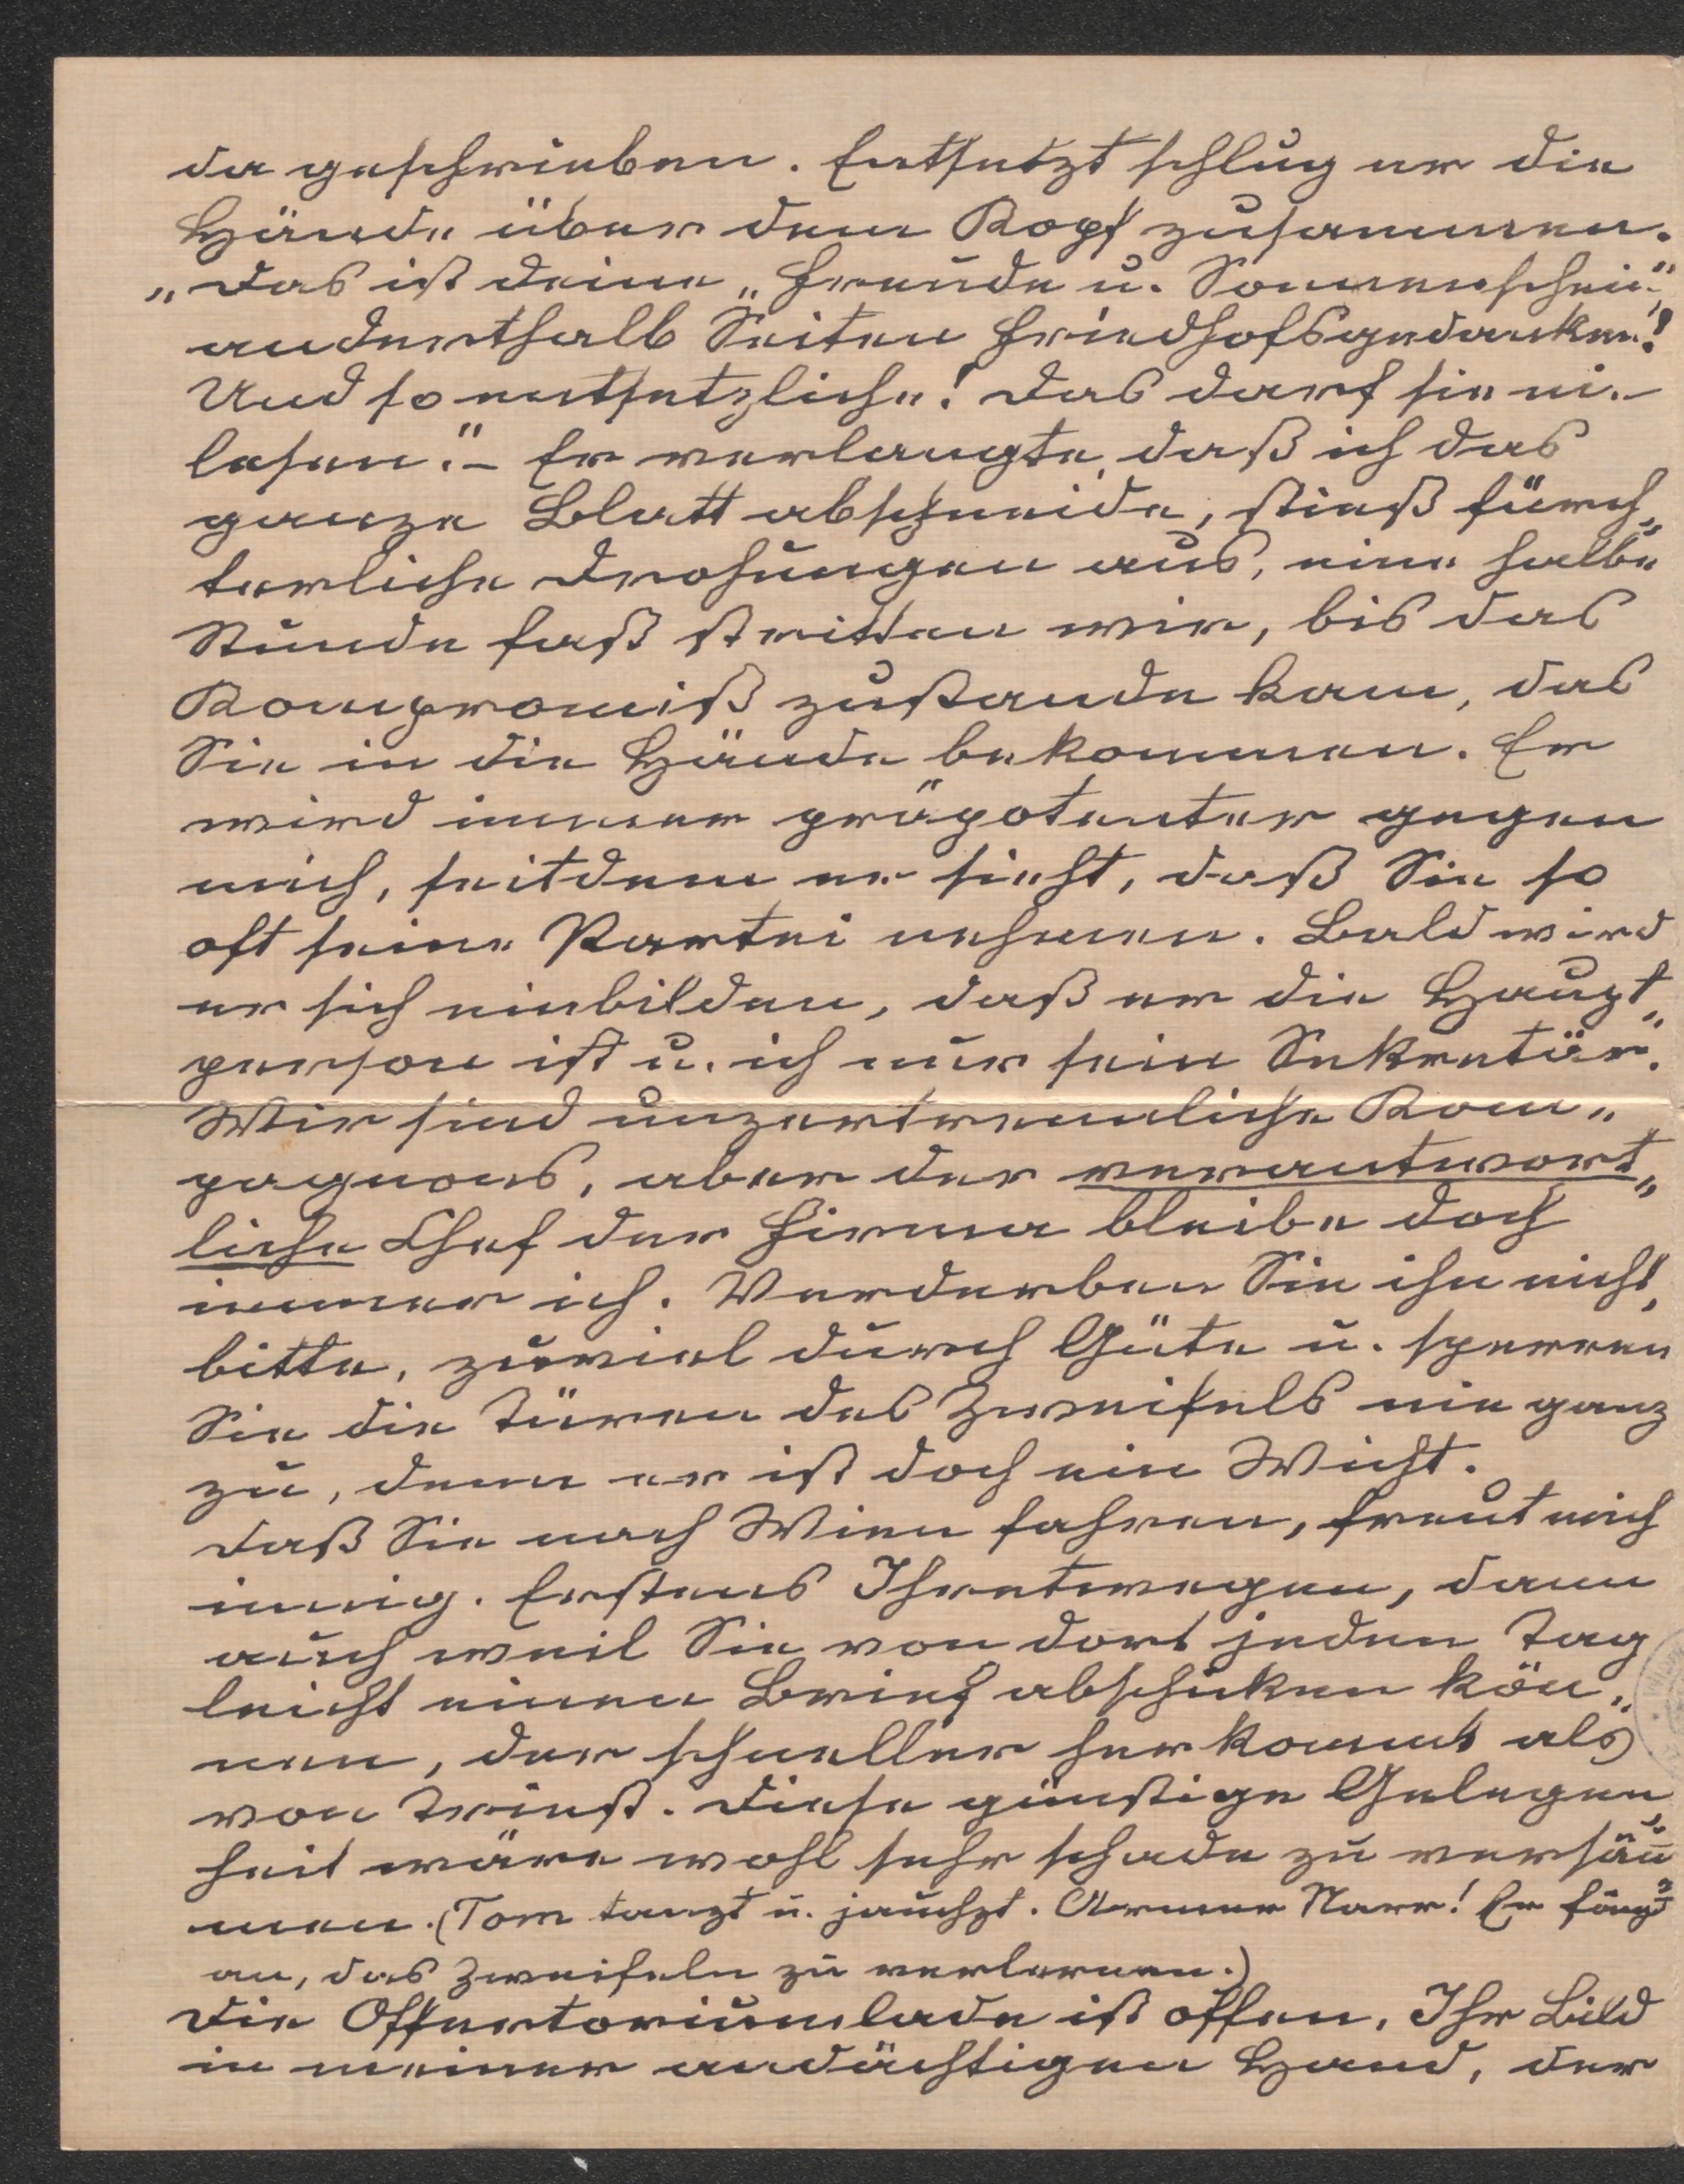 da geschrieben. Entsetzt schlug er die
Hände über dem Kopf zusammen.
„Das ist deine „Freude u. Sonnenschein“
anderthalb Seiten Friedhofsgedanken!
Und so entsetzliche! Das darf sie nie
lesen.“ – Er verlangte, daß ich das
ganze Blatt abschneide, stieß fürch„
terliche Drohungen aus, eine halbe
Stunde fast stritten wir, bis das
Kompromiß zustande kam, das
Sie in die Hände bekommen. Er
wird immer präpotenter gegen
mich, seitdem er sieht, daß Sie so
oft seine Partei nehmen. Bald wird
er sich einbilden, daß er die Haupt„
person ist u. ich nur sein Sekretär.
Wir sind unzertrennliche Kom„
pagnons, aber der verantwort„
liche Chef der Firma bleibe doch
immer ich. Verderben Sie ihn nicht,
bitte, zuviel durch Güte u. sperren
Sie die Türen des Zweifels nie ganz
zu, denn er ist doch ein Wicht.
Daß Sie nach Wien fahren, freut mich
innig. Erstens Ihretwegen, dann
auch weil Sie von dort jeden Tag
leicht einen Brief abschicken kön„
nen, der schneller herkommt als
von Triest. Diese günstige Gelegen„
heit wäre wohl sehr schade zu versäu„
men. (Tom tanzt u. jauchzt. Armer Narr! Er fängt
an, das Zweifeln zu verlernen.)
Die Offertoriumlade ist offen, Ihr Bild
in meiner andächtigen Hand, der